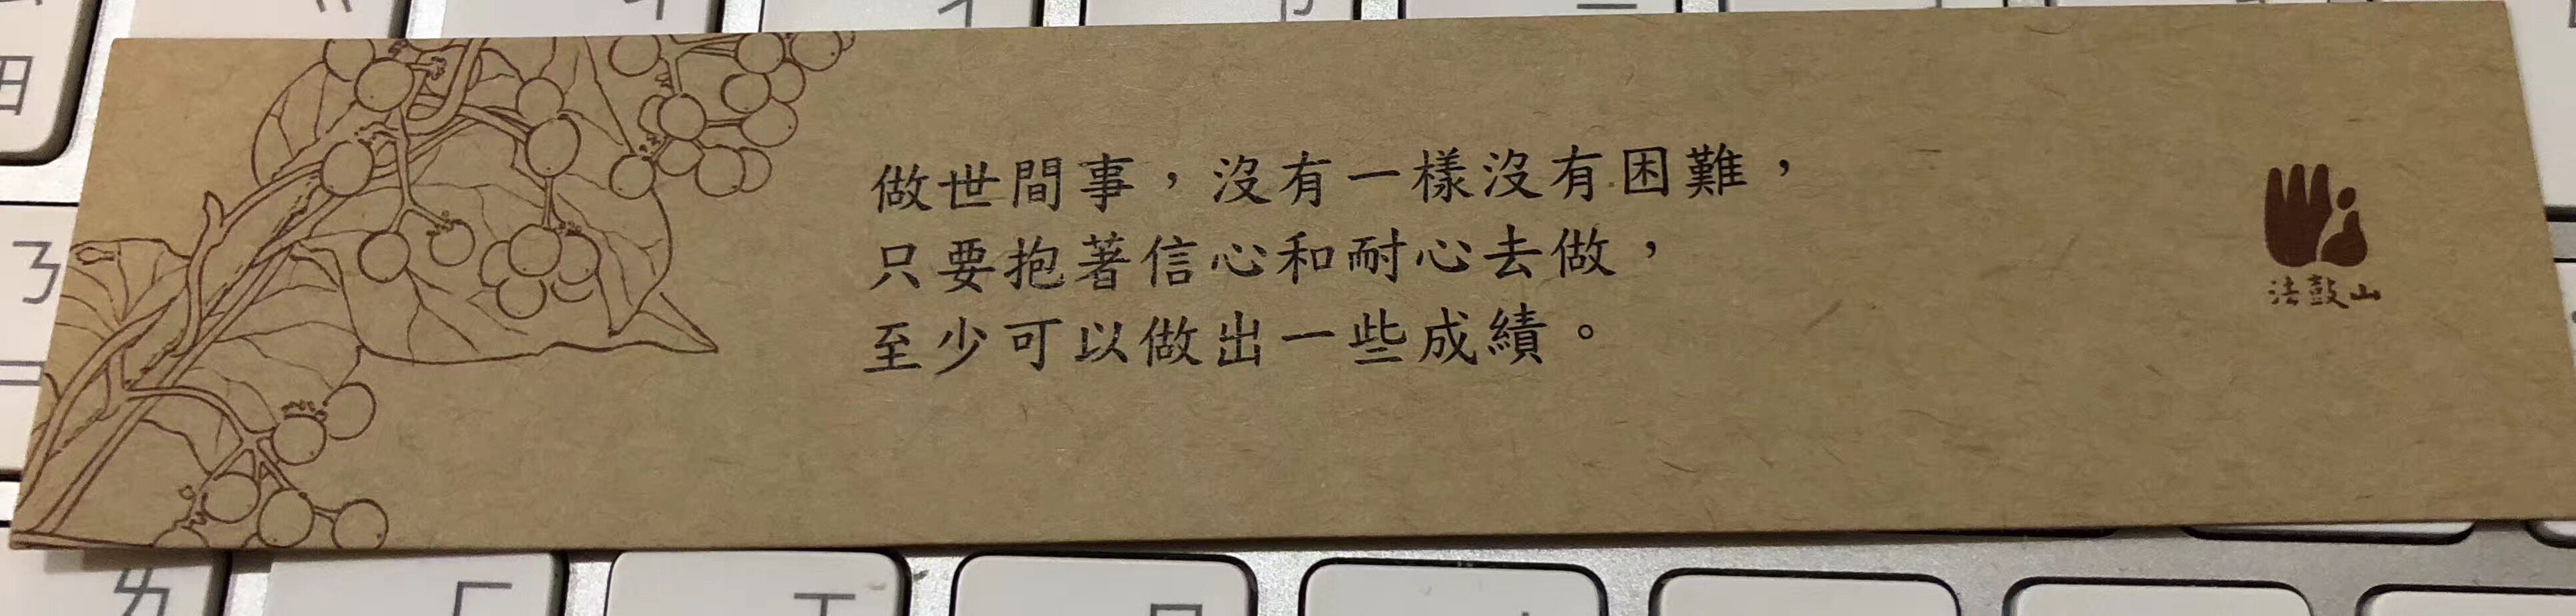 做世間事，沒有一樣沒有困難，
只要抱著信心和耐心去做，
至少可以做出一些成績。
法鼓山